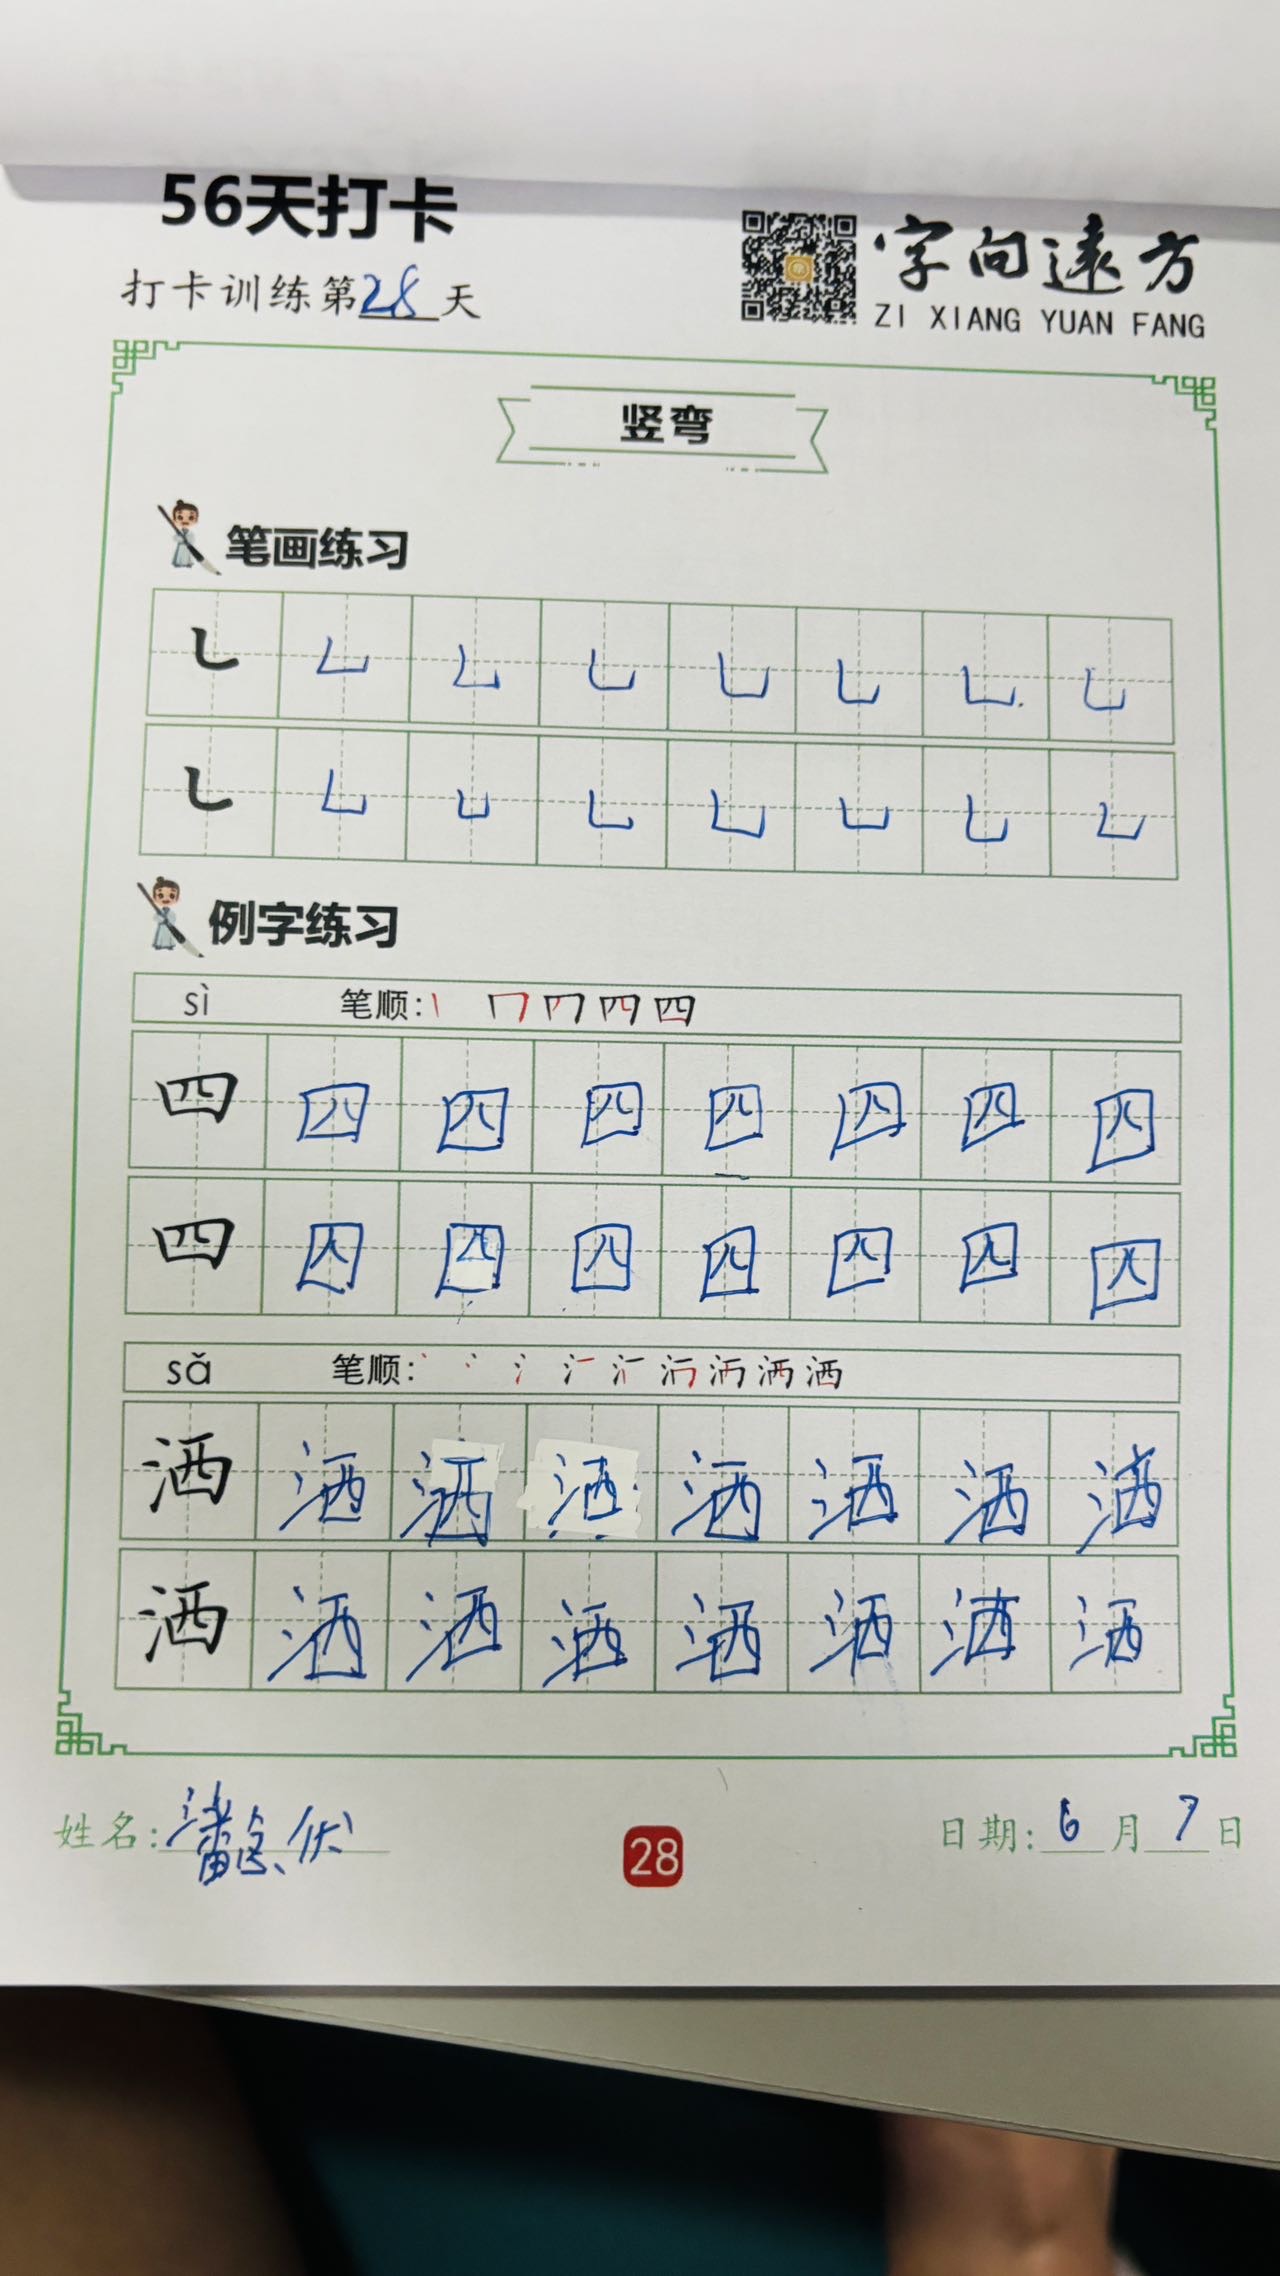 56天打卡
字向远方
打卡训练第28天
ZI XIANG YUAN FANG
竖弯
笔画练习
㇄ ㇄ ㇄ ㇄ ㇄ ㇄ ㇄ ㇄
㇄ ㇄ ㇄ ㇄ ㇄ ㇄ ㇄ ㇄
例字练习
sì 笔顺:
四 四 四 四 四 四 四 四
四 四 四 四 四 四 四 四
sǎ 笔顺:
洒 洒 洒 洒 洒 洒 洒 洒
洒 洒 洒 洒 洒 洒 洒 洒
姓名:潘
28
日期:6月7日